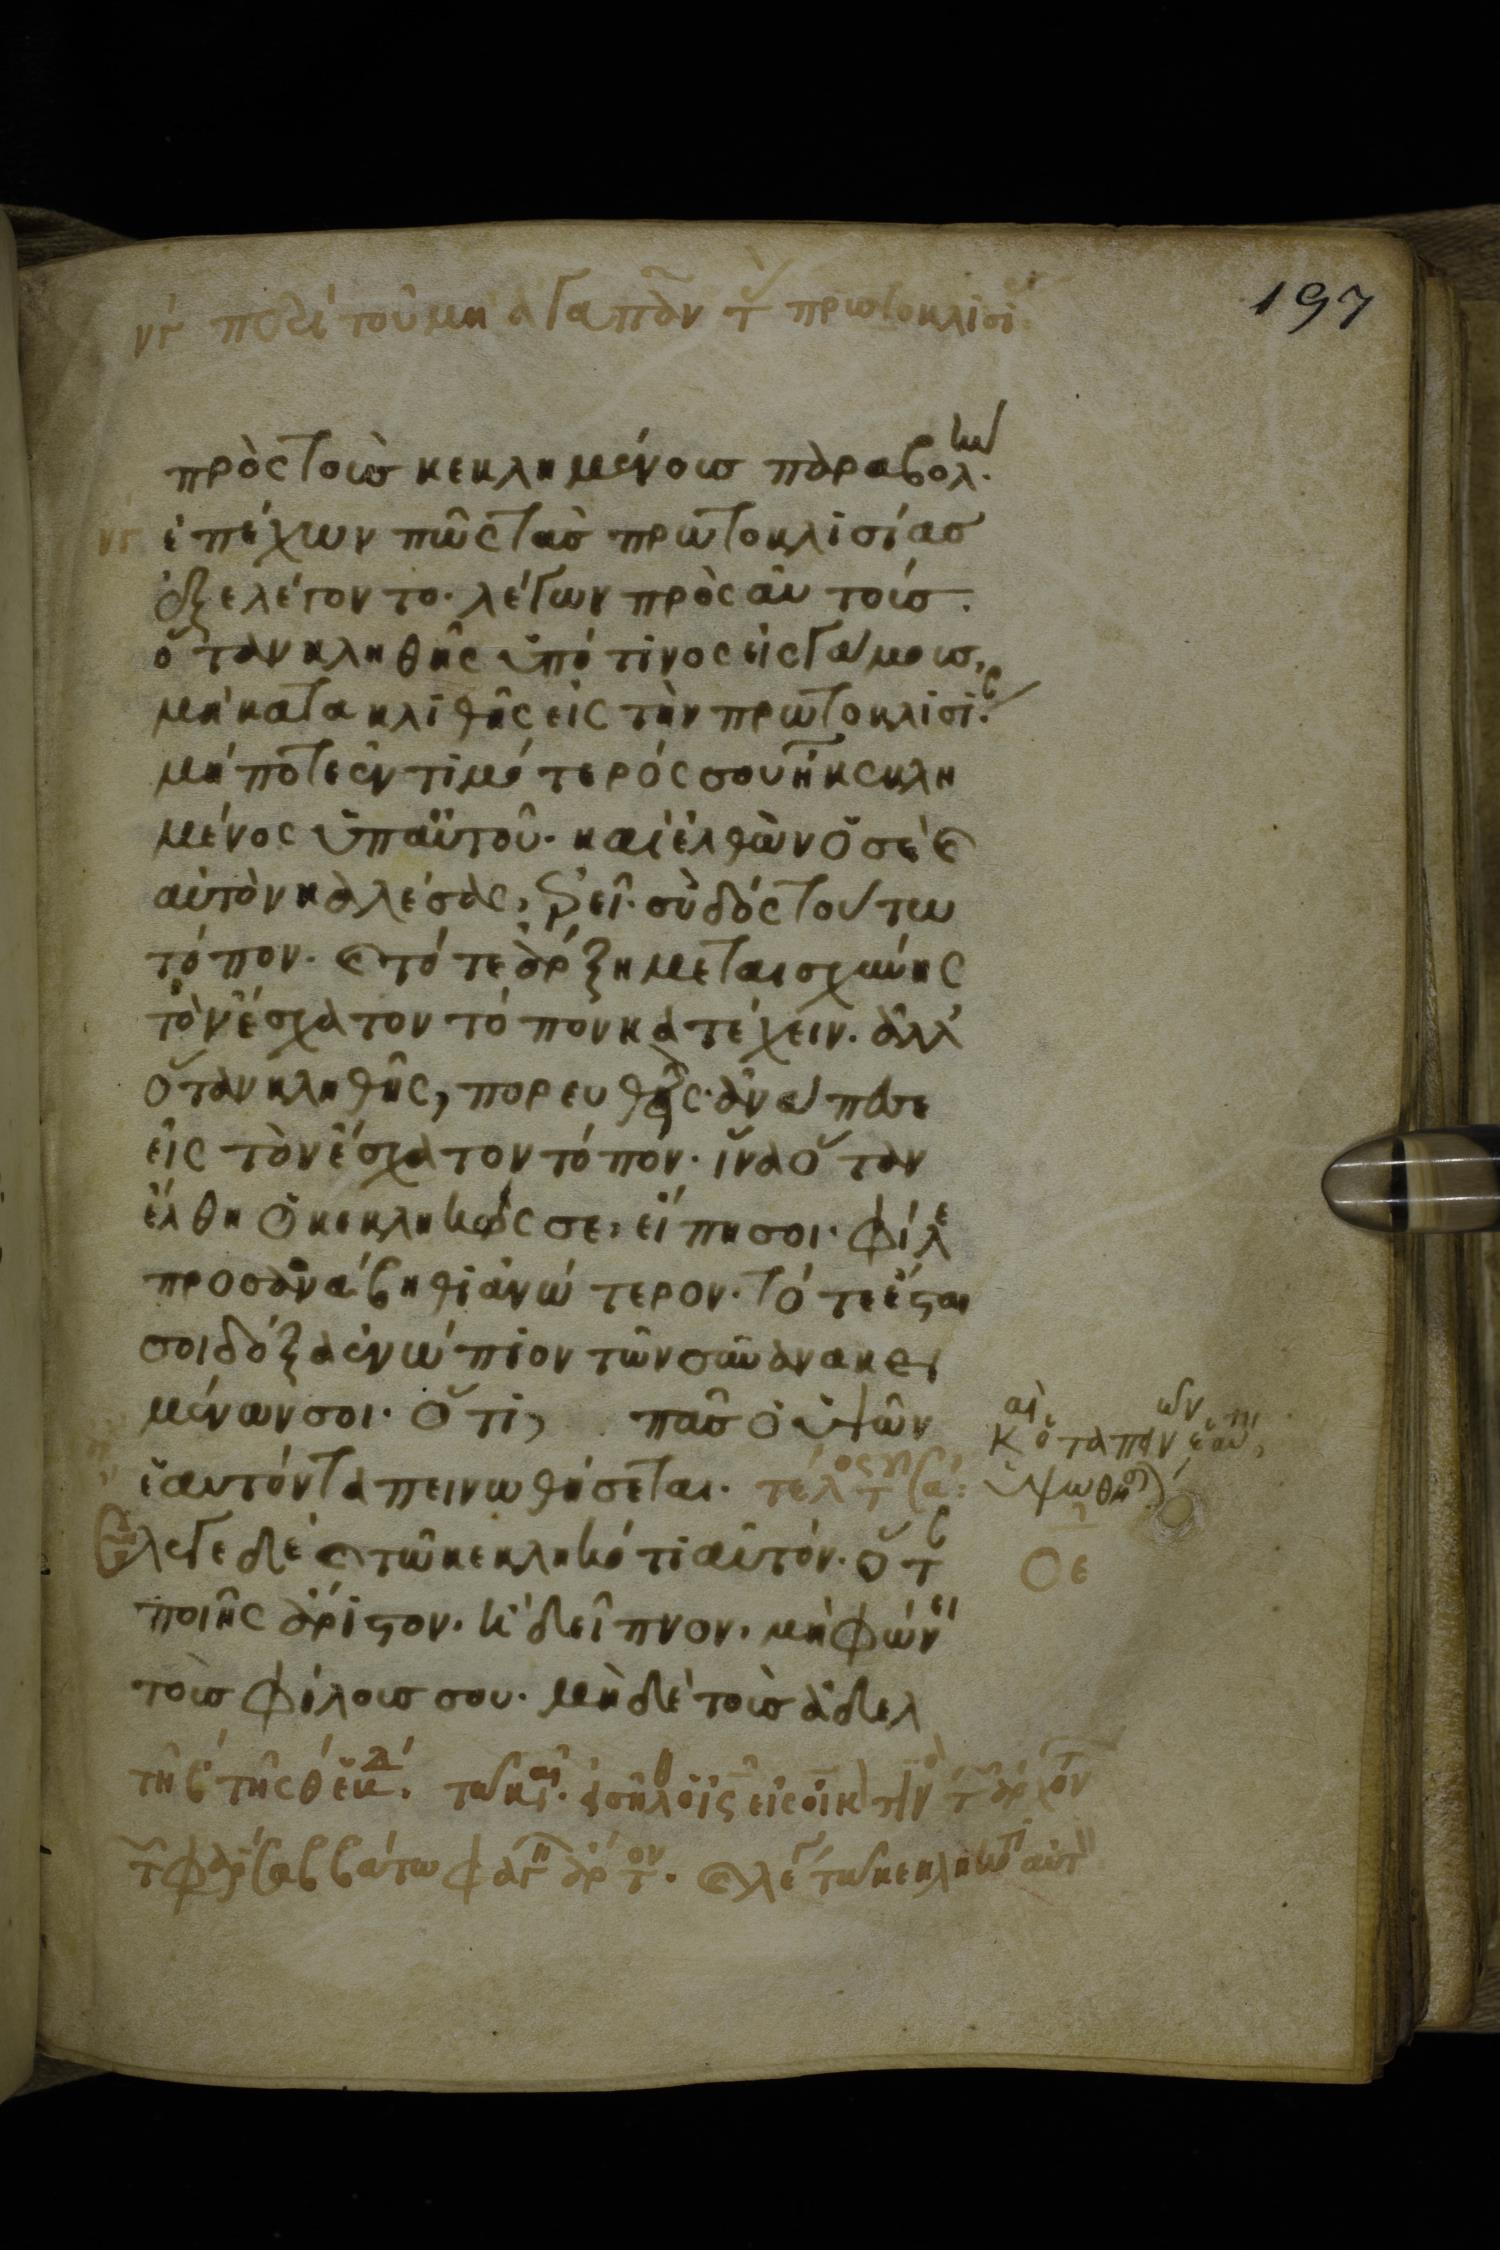 197
νγ περὶ τοῦ μὴ ἀγαπᾶν τ πρωτοκλισί
πρὸς τοὺς κεκλημένους παραβολ ην
νγ ἐπέχων πῶς τὰς πρωτοκλισίας
ἐξελέγοντο. λέγων πρὸς αὐτούς.
ὅταν κληθῆς ὑπό τινος εἰς γάμους,
μὴ κατακλιθῆς εἰς τὴν πρωτοκλισί.
μήποτε ἐντιμότερός σου ἦ κεκλη
μένος ὑπ αὐτοῦ. καὶ ἐλθὼν ὁ σὲ ϗ
αὐτὸν καλέσας, ἐρεῖ σοι δὸς τούτω
τόπον. ϗ τότε ἄρξη μετ αἰσχύνης
τὸν ἔσχατον τόπον κατέχειν. ἀλλ
ὅταν κληθῆς, πορευθεὶς ἀνάπεσε
εἰς τὸν ἔσχατον τόπον. ἵνα ὅταν
ἔλθη ὁ κεκληκώς σε, εἴπη σοι. φίλε
προσανάβηθι ἀνώτερον. τότε ἔσται
σοι δόξα ἐνώπιον τῶν συνανακει
μένων σοι. ὅτι, πᾶς ὁ ὑψῶν
ἑαυτὸν ταπεινωθήσεται. τέλος τ σα:
καὶ ὁ ταπεινῶν ἑαυτὸν,
ὑψωθήσεται
Ἔλεγε δὲ ϗ τῶ κεκληκότι αὐτόν. ὅτ
ΟΕ
ποιῆς ἄριστον. ἢ δεῖπνον. μὴ φώνει
τοὺς φίλους σου. μηδὲ τοὺς ἀδελ